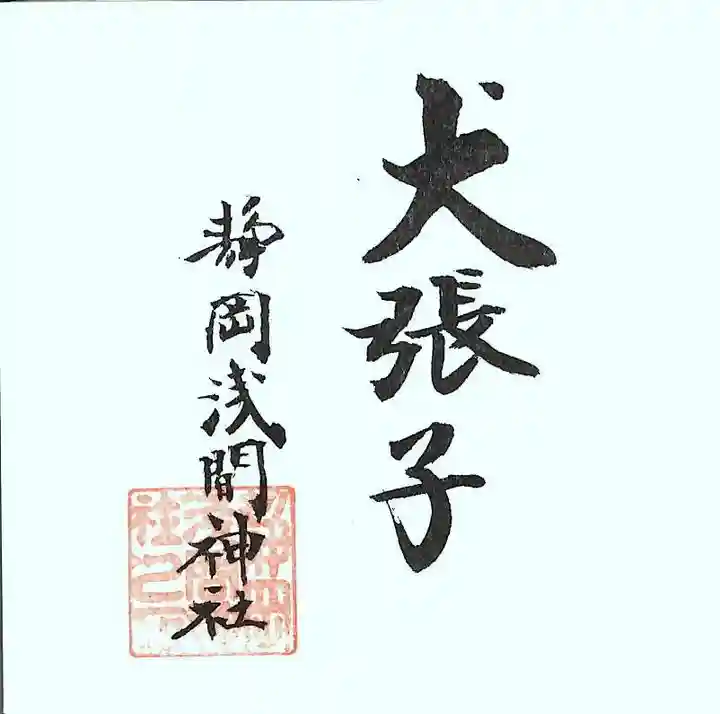 犬張子
静岡浅間神社